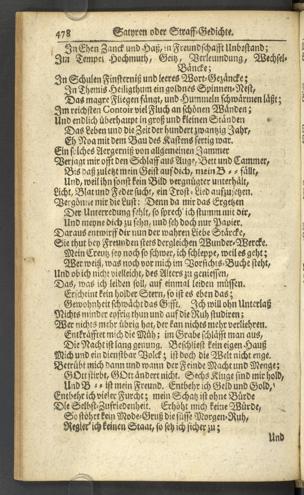 478 Satyren oder Straff-Gedichte.
In Ehen Zanck und Haß, in Freundschafft Unbestand;
Im Tempel Hochmuth, Geitz, Verleumdung, Wechsel-
Bäncke;
In Schulen Finsterniß und leeres Wort-Gezäncke;
In Themis-Heiligthum ein goldnes Spinnen-Nest,
Das magre Fliegen fängt, und Hummeln schwärmen läßt;
Im reichsten Contoir viel Fluch an schönen Wänden;
Und endlich überhaupt in groß und kleinen Ständen
Das Leben und die Zeit der hundert zwantzig Jahr,
Eh Noa mit dem Bau des Kastens fertig war.
Ein solches Aergerniß von allgemeinen Jammer
Verjagt mir offt den Schlaff aus Auge, Bett und Cammer,
Biß daß zuletzt mein Geist auf dich, mein B - - fällt,
Und, weil ihn sonst kein Bild vergnügter unterhält,
Licht, Blat und Feder sucht, ein Trost-Lied aufzusetzen.
Vergönne mir die Lust: Denn da mir das Ergetzen
Der Unterredung fehlt, so sprech' ich stumm mit dir,
Und meyne dich zu sehn, und seh doch nur Papier.
Daraus entwirff dir nun der wahren Liebe Stärcke,
Sie thut bey Freunden stets dergleichen Wunder-Wercke.
Mein Creutz sey noch so schwer, ich schleppe, weil es geht;
Wer weiß, was noch vor mich im Vorsichts-Buche steht,
Und ob ich nicht vielleicht, des Alters zu geniessen,
Das, was ich leiden soll, auf einmal leiden müssen.
Erscheint kein holder Stern, so ist es eben das;
Gewohnheit schwächt das Gifft. Ich will ohn Unterlaß
Nichts minder eyfrig thun und auf die Ruh studiren;
Wer nichts mehr übrig hat, der kan nichts mehr verliehren.
Entkräfftet mich die Müh; im Grabe schläfft man aus,
Die Nacht ist lang genung. Beschliest kein eigen-Hauß
Mich und ein dienstbar Volck; ist doch die Welt nicht enge.
Betrübt mich dann und wann der Feinde Macht und Menge;
GOtt stirbt, GOtt ändert nicht. Sechs Kinge sind mir hold,
Und B - - ist mein Freund. Entbehr ich Geld und Gold,
Entbehr ich vieler Furcht; mein Schatz ist ohne Bürde
Die Selbst-Zufriedenheit. Erhöht mich keine Würde,
So stöhrt kein Mode-Gruß die süsse Morgen-Ruh,
Regier' ich keinen Staat, so seh ich sicher zu;
Und